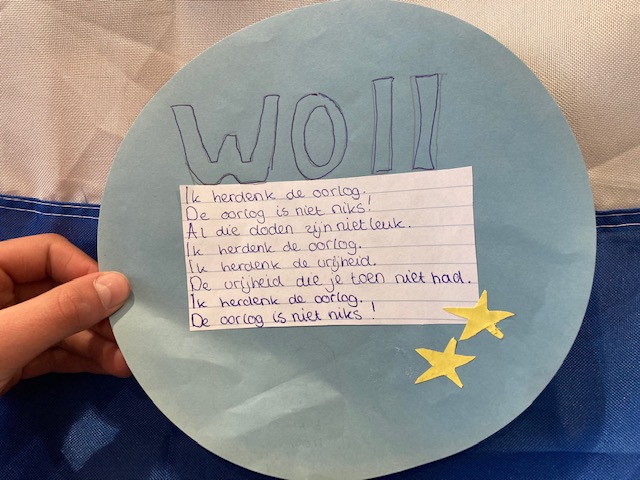 WO II
Ik herdenk de oorlog.
De oorlog is niet niks!
Al die doden zijn niet leuk.
Ik herdenk de oorlog.
Ik herdenk de vrijheid.
De vrijheid die je toen niet had.
Ik herdenk de oorlog.
De oorlog is niet niks!